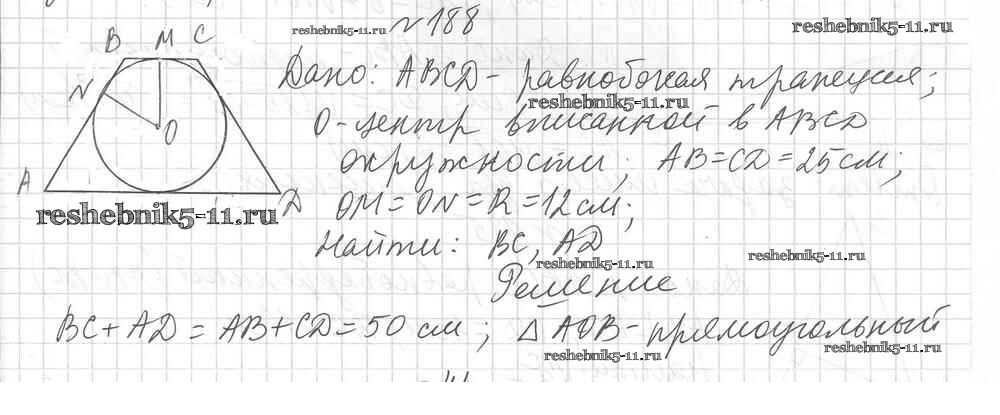 №188
reshebnik5-11.ru
reshebnik5-11.ru
B M C
Дано: ABCD - равнобокая трапеция;
N
reshebnik5-11.ru
O
O - центр вписанной в ABCD
окружности; AB=CD=25см;
A
D
reshebnik5-11.ru
OM=ON=R=12см;
Найти: BC, AD
reshebnik5-11.ru
reshebnik5-11.ru
Решение
BC+AD=AB+CD=50 см; △AOB - прямоугольный
reshebnik5-11.ru
reshebnik5-11.ru